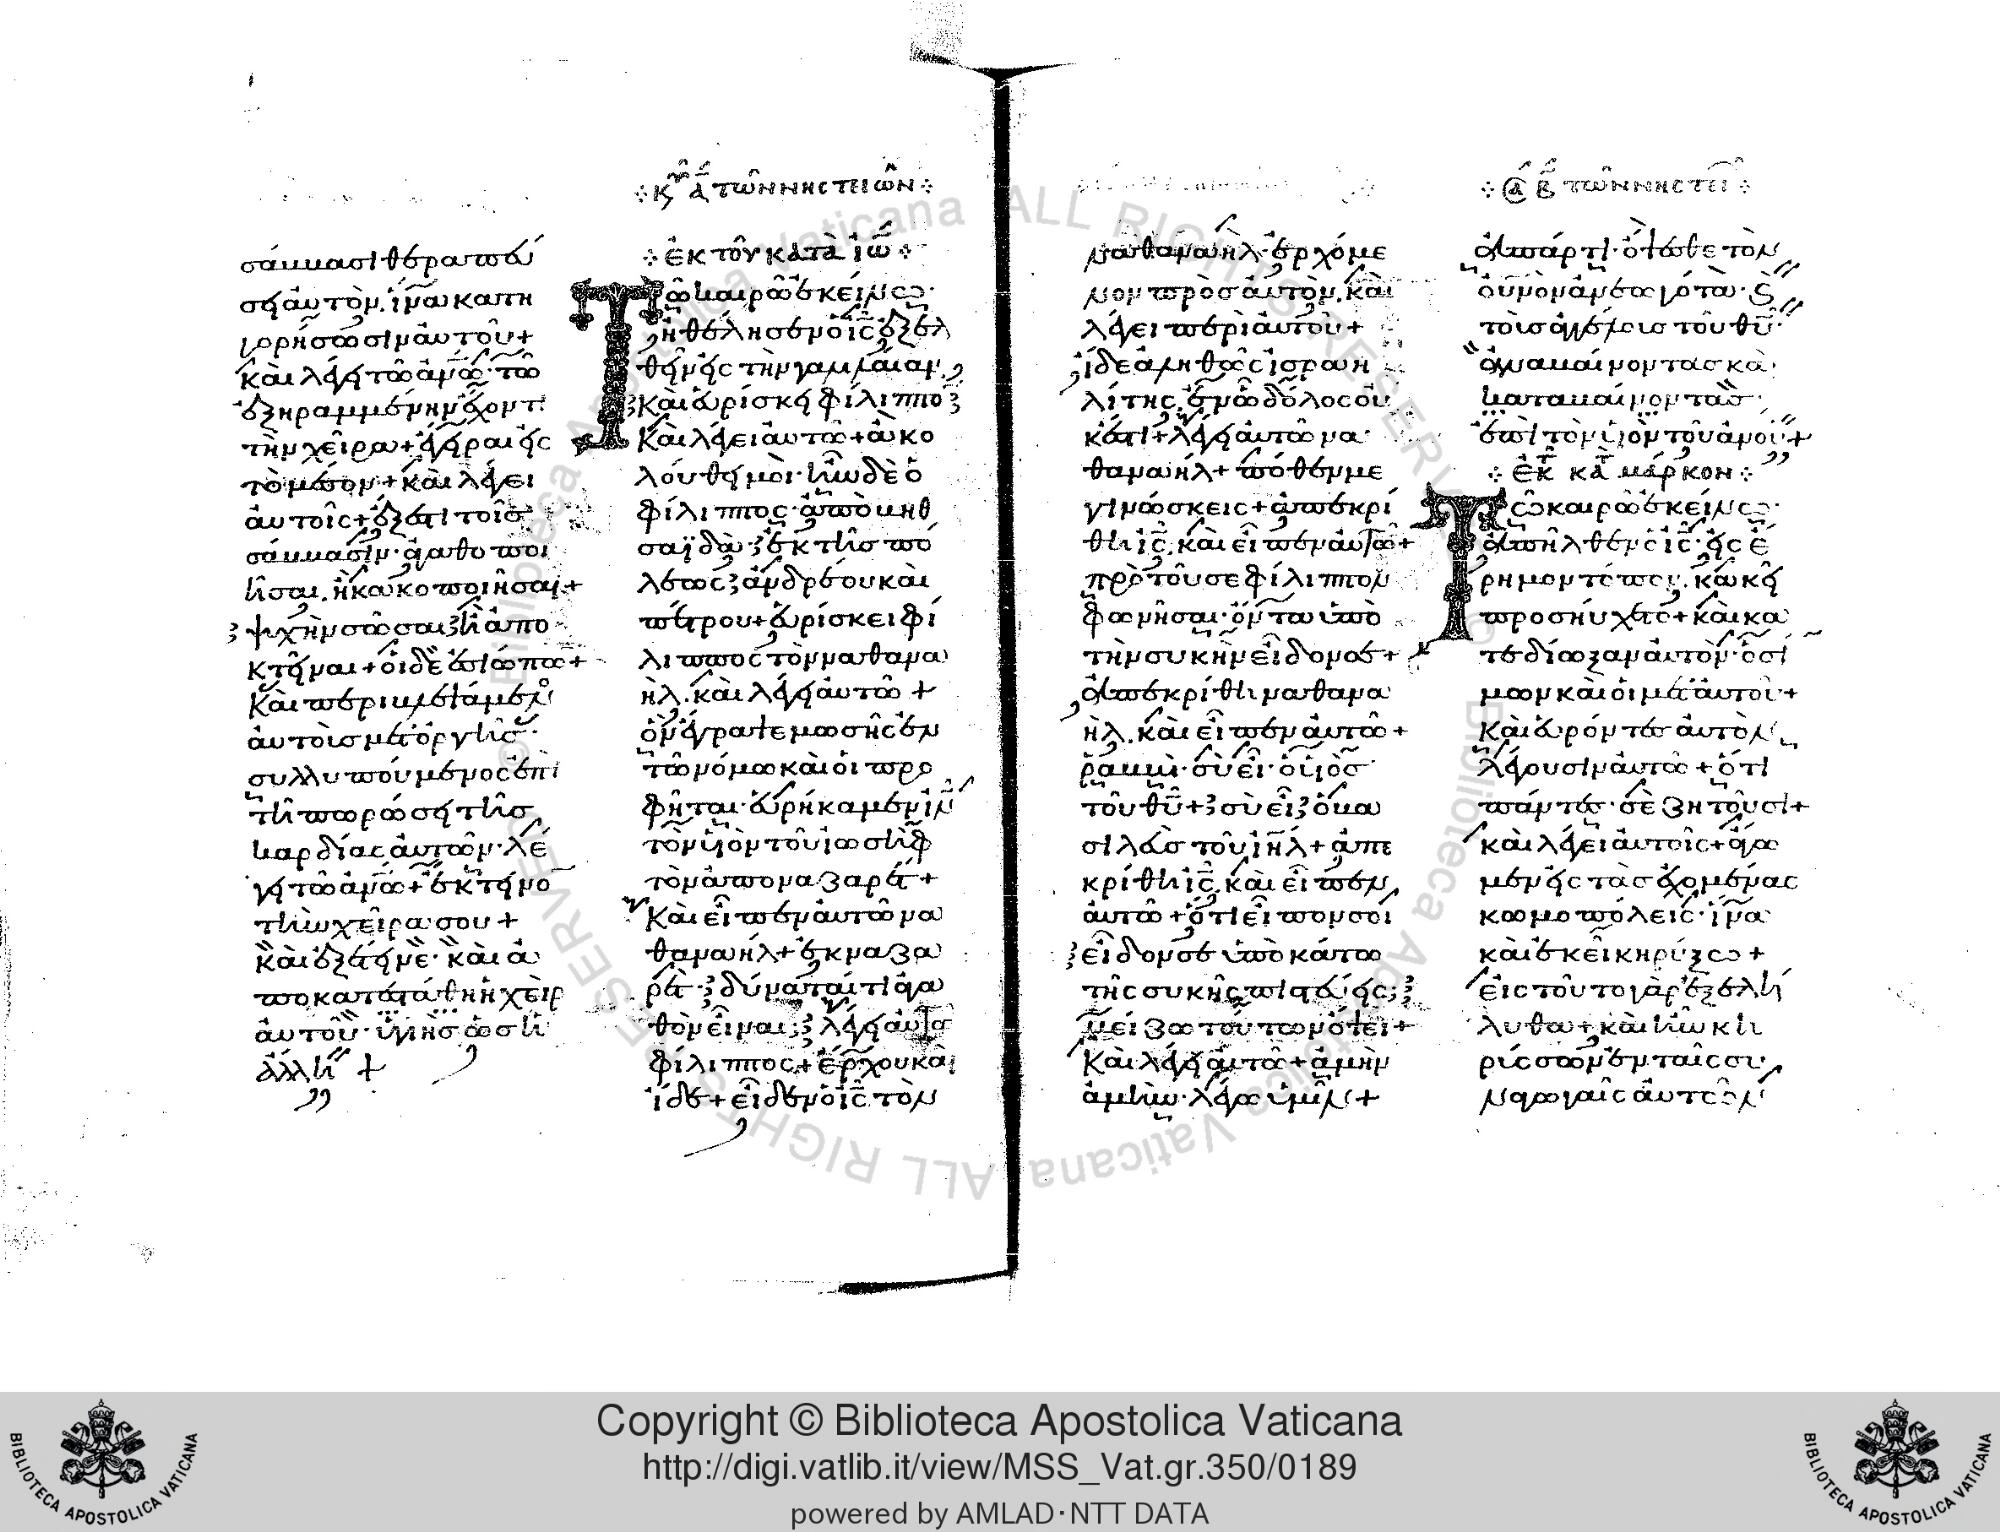 σάμμασι θεραπεύ
σει αὐτὸν, ἵνα κατη
γορήσωσιν αὐτοῦ +
Καὶ λέγει τῶ ἀνῶ· τῶ
ἐξηραμμένην ἔχοντι
τὴν χεῖρα + ἔγειραι εἰς
τὸ μέσον + καὶ λέγει
αὐτοῖς + ἔξεστι τοῖς
σάμμασιν· ἀγαθοποι
ῆσαι, ἢ κακοποιῆσαι +
ψυχὴν σῶσαι ἢ ἀπο
κτεῖναι + οἱ δὲ ἐσιώπων +
Καὶ περιβλεψάμενος
αὐτοὺς μετ' ὀργῆς·
συλλυπούμενος ἐπὶ
τῆ πωρώσει τῆς
καρδίας αὐτῶν· λέ
γει τῶ ἀνῶ + ἔκτεινο
τὴν χεῖρα σου +
Καὶ ἐξέτεινε· καὶ ἀ
ποκατεστάθη ἡ χεὶρ
αὐτοῦ· ὑγιὴς ὡς ἡ
ἄλλη +
Κυ α τῶν νηστειῶν
ἐκ τοῦ κατὰ ἰω
Τῶ καιρῶ ἐκείνω·
ἠθέλησεν ὁ ις ἐξελ
θεῖν εἰς τὴν γαλιλαίαν,
Καὶ εὑρίσκει φίλιππο
Καὶ λέγει αὐτῶ + ἀκο
λούθει μοι· ἦν δὲ ὁ
φίλιππος· ἀπὸ βηθ
σαϊδὰ· ἐκ τῆς πό
λεως ἀνδρέου καὶ
πέτρου + εὑρίσκει φί
λιππος τὸν ναθανα
ὴλ, καὶ λέγει αὐτῶ +
ὃν ἔγραψε μωσῆς ἐν
τῶ νόμω καὶ οἱ προ
φῆται· εὑρήκαμεν ιν
τὸν υἱὸν τοῦ ἰωσὴφ
τὸν ἀπὸ ναζαρέτ +
Καὶ εἶπεν αὐτῶ να
θαναήλ + ἐκ ναζα
ρὲτ· δύναταί τι ἀγα
θὸν εἶναι; λέγει αὐτῶ
φίλιππος + ἔρχου καὶ
ἴδε + εἶδεν ὁ ις τὸν
ναθαναὴλ· ἐρχόμε
νον πρὸς αὐτὸν, καὶ
λέγει περὶ αὐτοῦ +
ἴδε ἀληθῶς ἰσραη
λίτης, ἐν ῶ δόλος οὐ
κ ἔστι + λέγει αὐτῶ να
θαναήλ + πόθεν με
γινώσκεις + ἀπεκρί
θη ις, καὶ εἶπεν αὐτῶ +
πρὸ τοῦ σε φίλιππον
φωνῆσαι· ὄντα ὑπὸ
τὴν συκῆν εἶδον σε +
Ἀπεκρίθη ναθανα
ὴλ, καὶ εἶπεν αὐτῶ +
ῥαββὶ· σὺ εἶ· ὁ υἱὸς
τοῦ θυ + σὺ εἶ ὁ βα
σιλεὺς τοῦ ιηλ + ἀπε
κρίθη ις, καὶ εἶπεν,
αὐτῶ + ὅτι εἶπον σοί
εἶδον σε ὑποκάτω
τῆς συκῆς πιστεύεις;
μείζω τούτων ὄψει +
Καὶ λέγει αὐτῶ + ἀμὴν
ἀμὴν· λέγω ὑμῖν +
α β τῶν νηστει
ἀπάρτι· ὄψεσθε τὸν
οὐνὸν ἀνεωγότα· κ
τοὺς ἀγγέλους τοῦ θυ·
ἀναβαίνοντας κὰ
καταβαίνοντας·
ἐπὶ τὸν υἱὸν τοῦ ἀνου +
ἐκ κα μάρκον
Τῶ καιρῶ ἐκείνω·
ἀπῆλθεν ὁ ις· εἰς ἔ
ρημον τόπον, κακεῖ
προσηύχετο + καὶ κα
τεδίωξαν αὐτὸν· ὁ σί
μων καὶ οἱ μετ' αὐτοῦ +
Καὶ εὑρόντες αὐτὸν,
λέγουσιν αὐτῶ + ὅτι
πάντες· σὲ ζητοῦσι +
καὶ λέγει αὐτοῖς + ἄγω
μεν εἰς τὰς ἐχομένας
κωμοπόλεις· ἵνα
κἀκεῖ κηρύξω +
εἰς τοῦτο γὰρ ἐξελή
λυθα + καὶ ἦν κη
ρύσσων ἐν ταῖς συ
ναγωγαῖς αὐτῶν
Copyright © Biblioteca Apostolica Vaticana
http://digi.vatlib.it/view/MSS_Vat.gr.350/0189
powered by AMLAD·NTT DATA
BIBLIOTECA APOSTOLICA VATICANA
BIBLIOTECA APOSTOLICA VATICANA